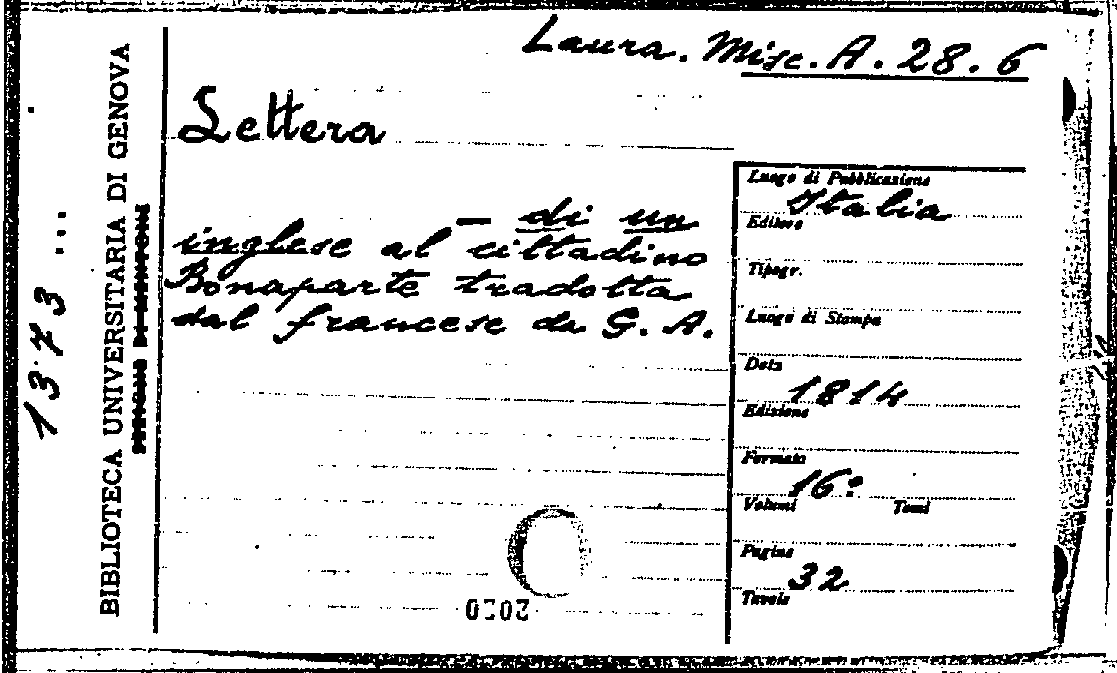 Laura. Misc. A. 28. 6
Lettera
— di un
inglese al cittadino
Bonaparte tradotta
dal francese da G. A.
Luogo di Pubblicazione
Italia
Editore
Tipogr.
Luogo di Stampa
Data
1814
Edizione
Formato
16°
Volumi Tomi
Pagine
32
Tavole
BIBLIOTECA UNIVERSITARIA DI GENOVA
1373 ...